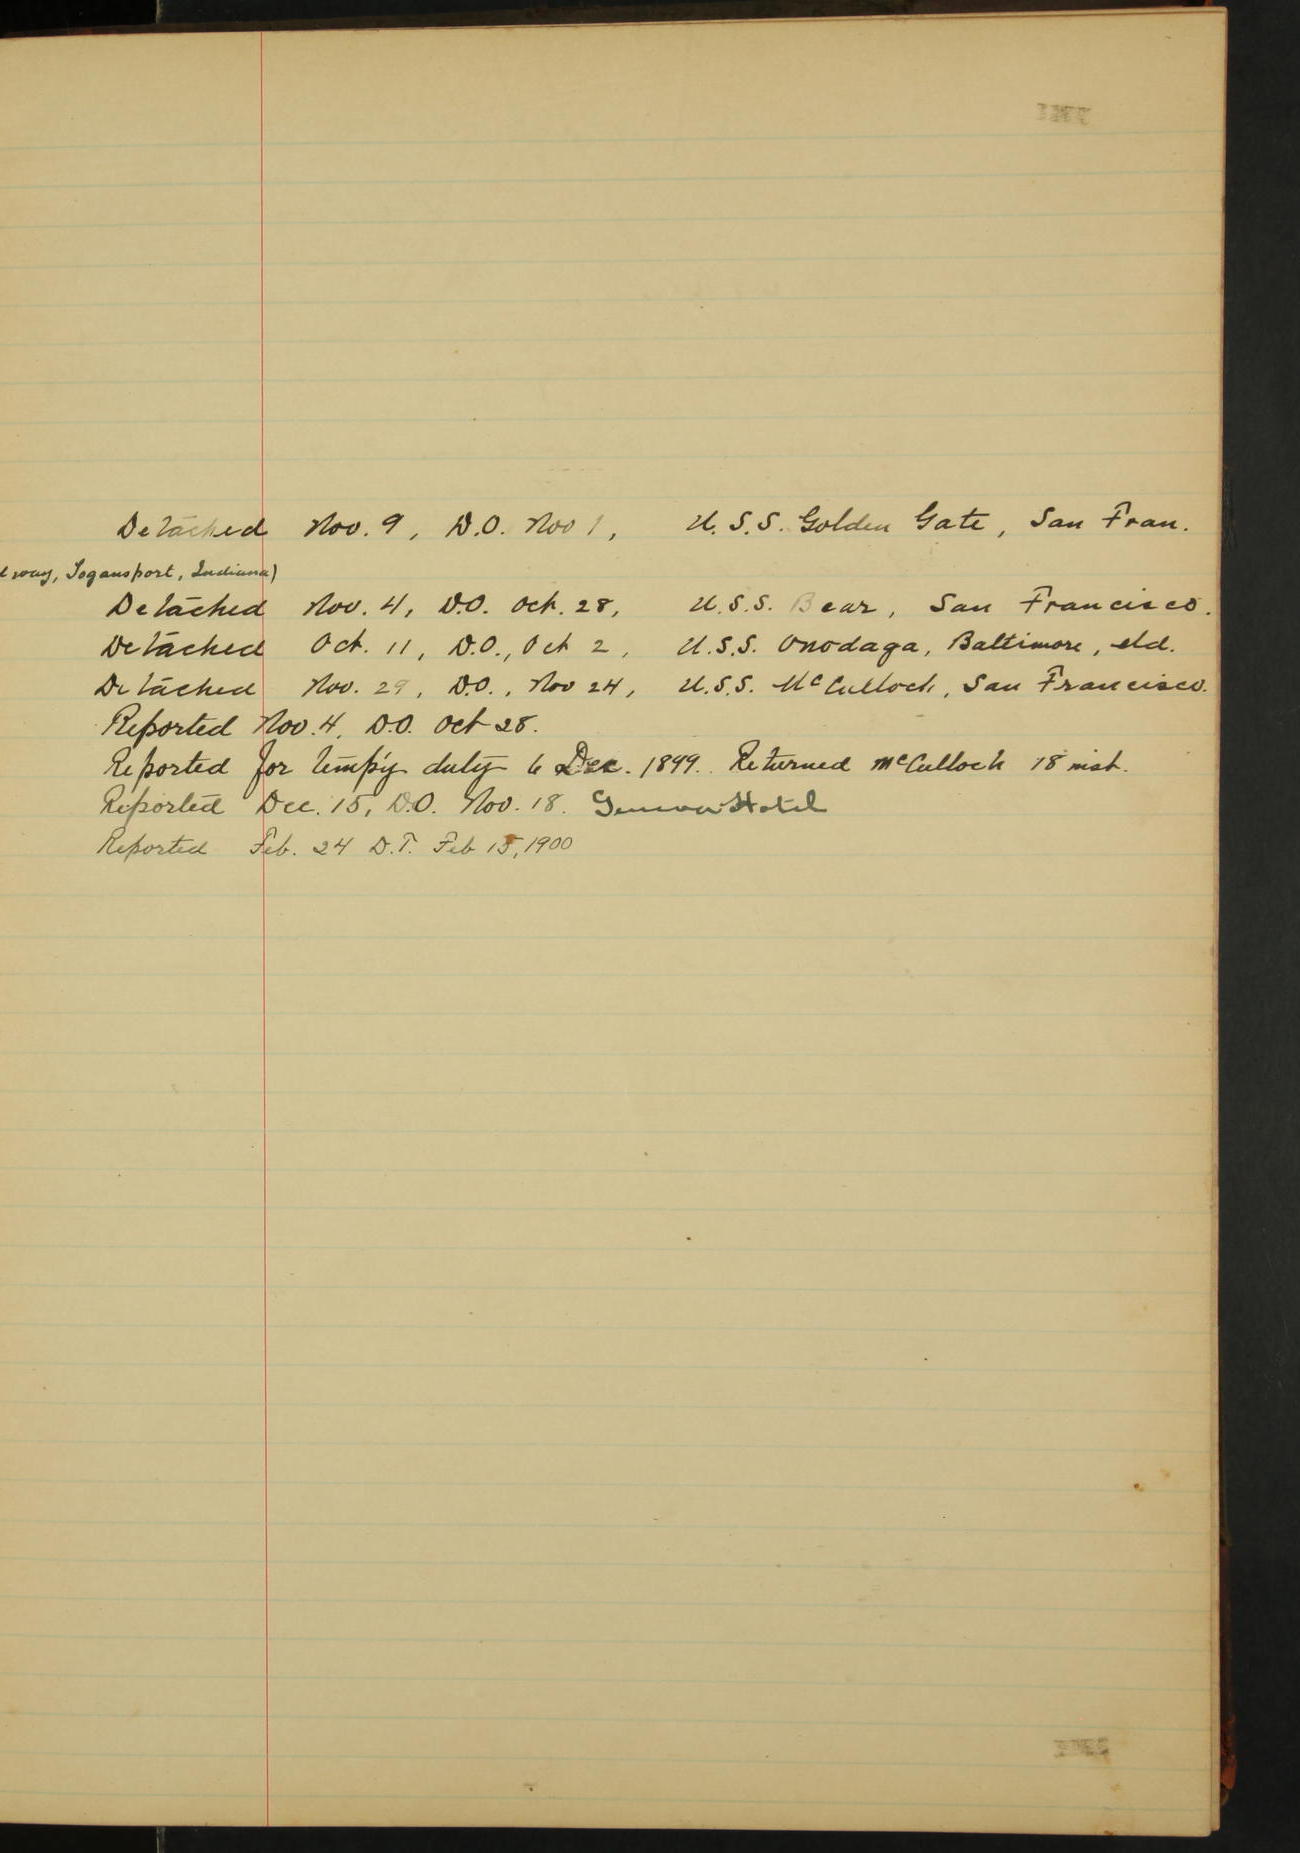 Detached Nov. 9, D.O. Nov 1, U.S.S. Golden Gate, San Fran.
way, Logansport, Indiana)
Detached Nov. 4, D.O. Oct. 28, U.S.S. Bear, San Francisco.
Detached Oct. 11, D.O., Oct 2, U.S.S. Onodaga, Baltimore, Md.
Detached Nov. 29, D.O., Nov 24, U.S.S. McCulloch, San Francisco.
Reported Nov. 4, D.O. Oct 28.
Reported for temp'y duty 6 Dec. 1899. Returned McCulloch 18 inst.
Reported Dec. 15, D.O. Nov. 18. Geneva Hotel
Reported Feb. 24 D.T. Feb 15, 1900